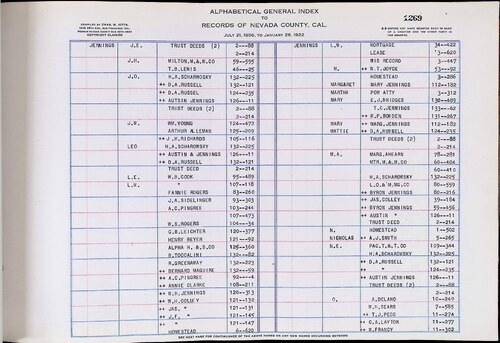 ALPHABETICAL GENERAL INDEX
TO
RECORDS OF NEVADA COUNTY, CAL.
JULY 21, 1856, TO JANUARY 28, 1922
1269
COPYRIGHT CLAIMED
JENNINGS J.E. TRUST DEEDS (2) 2--88
2--214
J.H. MILTON,M.& M.CO 59--595
T.B.LEWIS 48--25
J.O. H.A.SCHAROWSKY 132-225
++ D.A.RUSSELL 132-121
++ D.A.RUSSEL 124-235
++ AUTSIN JENNINGS 126--11
TRUST DEEDS (2) 2--88
2--214
J.W. WM.YOUNG 124-473
ARTHUR ALLEMAN 125-209
++ J.H.RICHARDS 105--116
LEO H.A.SCHAROWSKY 132-225
++ AUSTIN & JENNINGS 126--11
++ D.A.RUSSELL 132-121
TRUST DEED 2--214
L.E. W.D.COOK 95--489
L.W. " 107-118
FANNIE ROGERS 83-260
J.A.SIDELINGER 93-303
A.C.PINGREE 103-244
107-473
W.S.ROGERS 104--34
G.B.LEICHTER 120-377
HENRY BEYER 121--92
ALPHA H.&.D.CO 125-360
B.TOCCALINI 132--82
R.GREENAWAY 132-223
++ BERNARD MAGUIRE --59
++ A.C.PINGREE 92---4
++ ANNIE CLARKE 108-211
++ N.H.JENNINGS 120-313
++ W.H.COLLEY 121-130
++ JAS. " 121-131
++ J.F. " 121-145
++ " 121-147
HOMESTEAD
JENNINGS L.W. MORTGAGE 34--422
LEASE 3-620
MIS RECORD 3--447
++ N.T.JOYCE 53--92
HOMESTEAD 3-286
MARGARET MARY JENNINGS 112-182
MARTHA POW ATTY 3-312
MARY E.J.BRIDGES 130-489
T.C.JENNINGS 133-62
++ R.P.BORDEN 131-267
++ MARG.JENNINGS 112-182
MATTIE ++ D.A.RUSSELL 124-235
TRUST DEEDS (2) 2--88
2--214
M.A. MARG.AHEARN 78-281
MTR.M.& M.CO 60-406
60-410
H.A.SCHAROWSKY 132-225
80-559
++ BYRON JENNINGS 80-216
++ JAS.COLLEY 39-184
++ BYRON JENNINGS 59-456
++ AUSTIN " 126--11
TRUST DEEDS (2) 2--88
2--214
N. HOMESTEAD 1-502
NICHOLAS ++ A.J.SMITH 5-265
N.E. PAC.T.&T.CO 109-344
H.A.SCHAROWSKY 132-225
++ D.A.RUSSELL 132-121
++ " 124-235
++ AUSTIN JENNINGS 126--11
TRUST DEEDS (2) 2--88
2--214
O. A.DELANO 10-249
W.H.SEARS 7-585
++ T.J.PECO 11-274
++ C.A.LAYTON 11-277
++ B.FRANCY 11-302
SEE NEXT PAGE FOR CONTINUANCE OF THE ABOVE NAMES OR ANY NEW NAMES OCCURRING BETWEEN